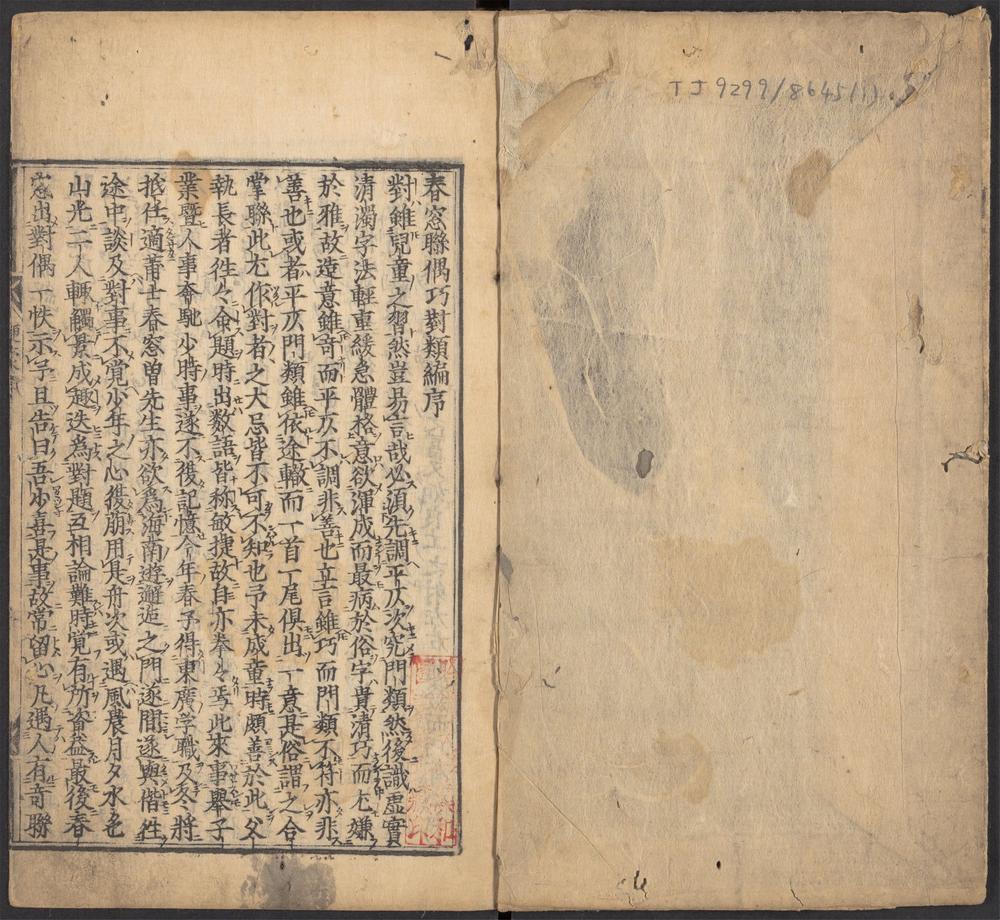 TJ 9299/8645(1)
春窓聯偶巧對類編序
對雖兒童之習然豈易言哉必須先調平仄次究門類然後識虛實
清濁字法輕重緩急體格意欲渾成而最病於俗字貴清巧而尤嫌
於雅故造意雖奇而平仄不調非善也立言雖巧而門類不符亦非
善也或者平仄門類雖依途轍而一首一尾俱出一意是俗謂之合
掌聯此尤作對者之大忌皆不可不知也予未成童時頗善於此父
執長者徃々命題時出数語皆称敏捷故自亦拳々焉此來事舉子
業暨人事奔馳少時事遂不復記憶今年春予得東廣学職及冬將
抵任適莆士春窓曽先生亦欲為海南遊邂逅之門遂間遂與偕徃
途中談及對事不覚少年之心復崩用是舟次或遇風晨月夕水色
山光二人輒觸景成趣迭為對題互相論難時覚有所畜益最後春
窓出對偶一帙示予且告曰吾少喜是事故常留心凡遇人有奇聯